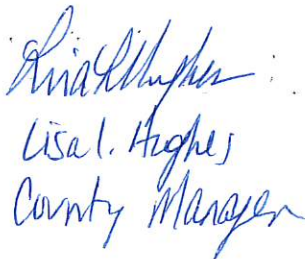 Lisa L Hughes
Lisa l. Hughes
County Manager